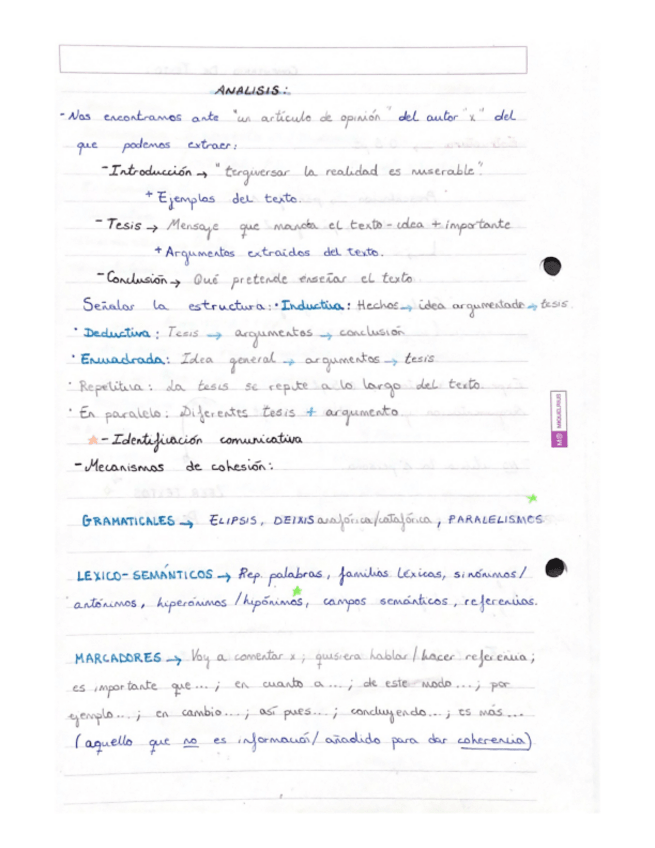 ANALISIS:
- Nos encontramos ante "un artículo de opinión" del autor "x" del
que podemos extraer:
- Introducción → "tergiversar la realidad es miserable"
+ Ejemplos del texto.
- Tesis → Mensaje que manda el texto - idea + importante
+ Argumentos extraídos del texto.
- Conclusión → Qué pretende enseñar el texto
Señalar la estructura: · Inductiva: Hechos → idea argumentada → tesis
· Deductiva: Tesis → argumentos → conclusión
· Encuadrada: Idea general → argumentos → tesis
· Repetitiva: La tesis se repite a lo largo del texto.
· En paralelo: Diferentes tesis + argumento
- Identificación comunicativa
- Mecanismos de cohesión:
GRAMATICALES → ELIPSIS, DEIXIS anafórica/catafórica, PARALELISMOS
LEXICO-SEMÁNTICOS → Rep. palabras, familias léxicas, sinónimos/
antónimos, hiperónimos/hipónimos, campos semánticos, referencias.
MARCADORES → Voy a comentar x; quisiera hablar/hacer referencia;
es importante que...; en cuanto a...; de este modo...; por
ejemplo...; en cambio...; así pues...; concluyendo...; es más...
(aquello que no es información/añadido para dar coherencia)
MIQUELRIUS